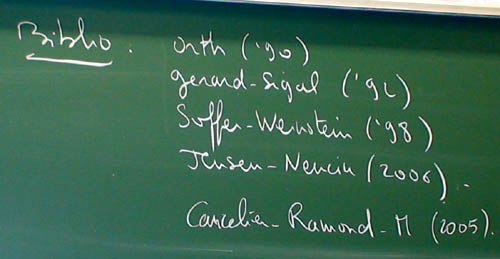 Biblio. Orth ('90)
Gérard-Sigal ('92)
Soffer-Weinstein ('98)
Jensen-Nenciu (2006).
Cancelier-Ramond-M (2005).